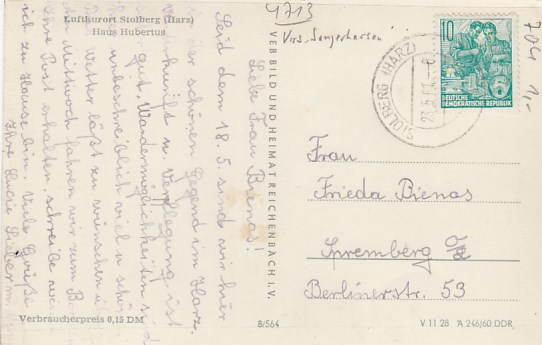 Luftkurort Stolberg (Harz)
Haus Hubertus
Liebe Frau Bienas!
Seid dem 18. 5. sind wir hier
in der schönen Gegend im Harz.
Unterkunft u. Verpflegung ist
gut. Wandermöglichkeiten sind
unbeschreiblich viel u schön.
Wetter läßt zu wünschen ü
Mittwoch fahren wir zum
Ihre Post erhalten, schreibe
ich zu Hause bin. Viele Grüße
Ihre Lucie
Verbraucherpreis 0,15 DM
VEB BILD UND HEIMAT REICHENBACH I. V.
8/564
4713
Krs. Sangerhausen
STOLBERG (HARZ)
10
DEUTSCHE
DEMOKRATISCHE REPUBLIK
704
1,-
Frau
Frieda Bienas
Spremberg
Berlinerstr. 53
V 11 28 A 246/60 DDR